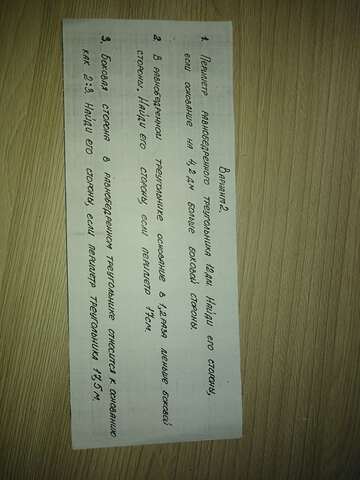 Вариант 2.
1. Периметр равнобедренного треугольника 12дм. Найди его стороны,
если основание на 4,2 дм больше боковой стороны.
2. В равнобедренном треугольнике основание в 1,2 раза меньше боковой
стороны. Найди его стороны, если периметр 17см.
3. Боковая сторона в равнобедренном треугольнике относится к основанию
как 2:3. Найди его стороны, если периметр треугольника 17,5 м.